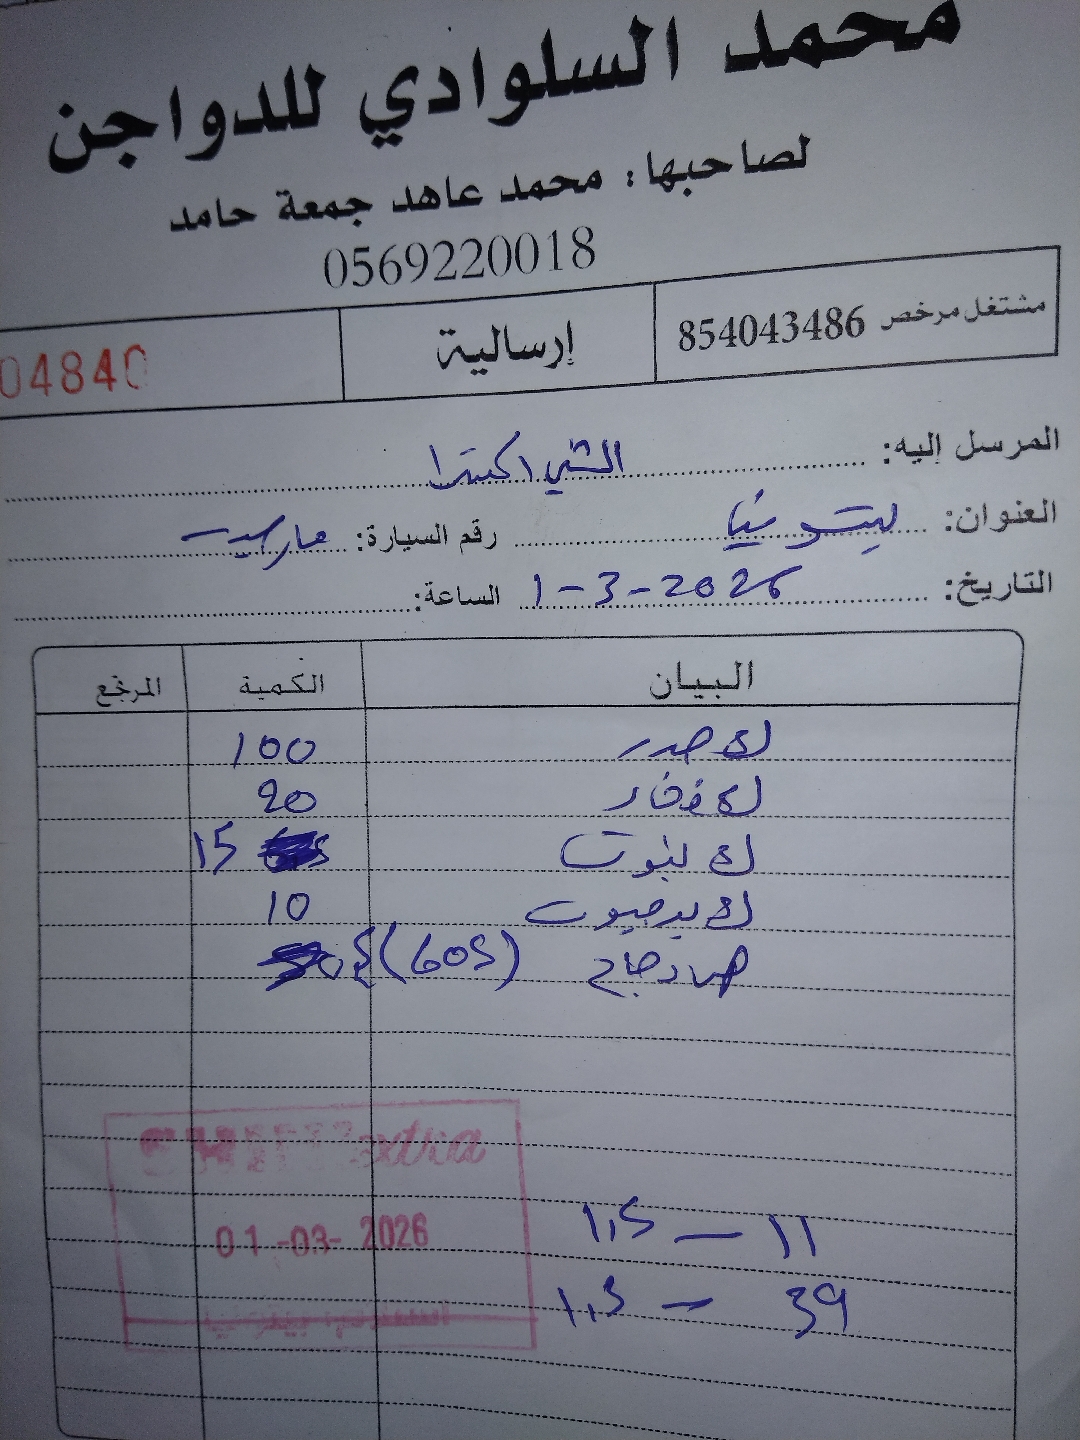 محمد السلوادي للدواجن
لصاحبها: محمد عاهد جمعة حامد
0569220018
مشتغل مرخص 854043486 إرسالية 04840
المرسل إليه: الشني اكسترا
العنوان: بيتونيا رقم السيارة:
التاريخ: 1-3-2026 الساعة:
البيان الكمية المرتجع
ك صدر 100
ك فخار 20
ك 15
ك 10
دجاج (605)
extra
01-03-2026
1,5 — 11
1,3 — 39